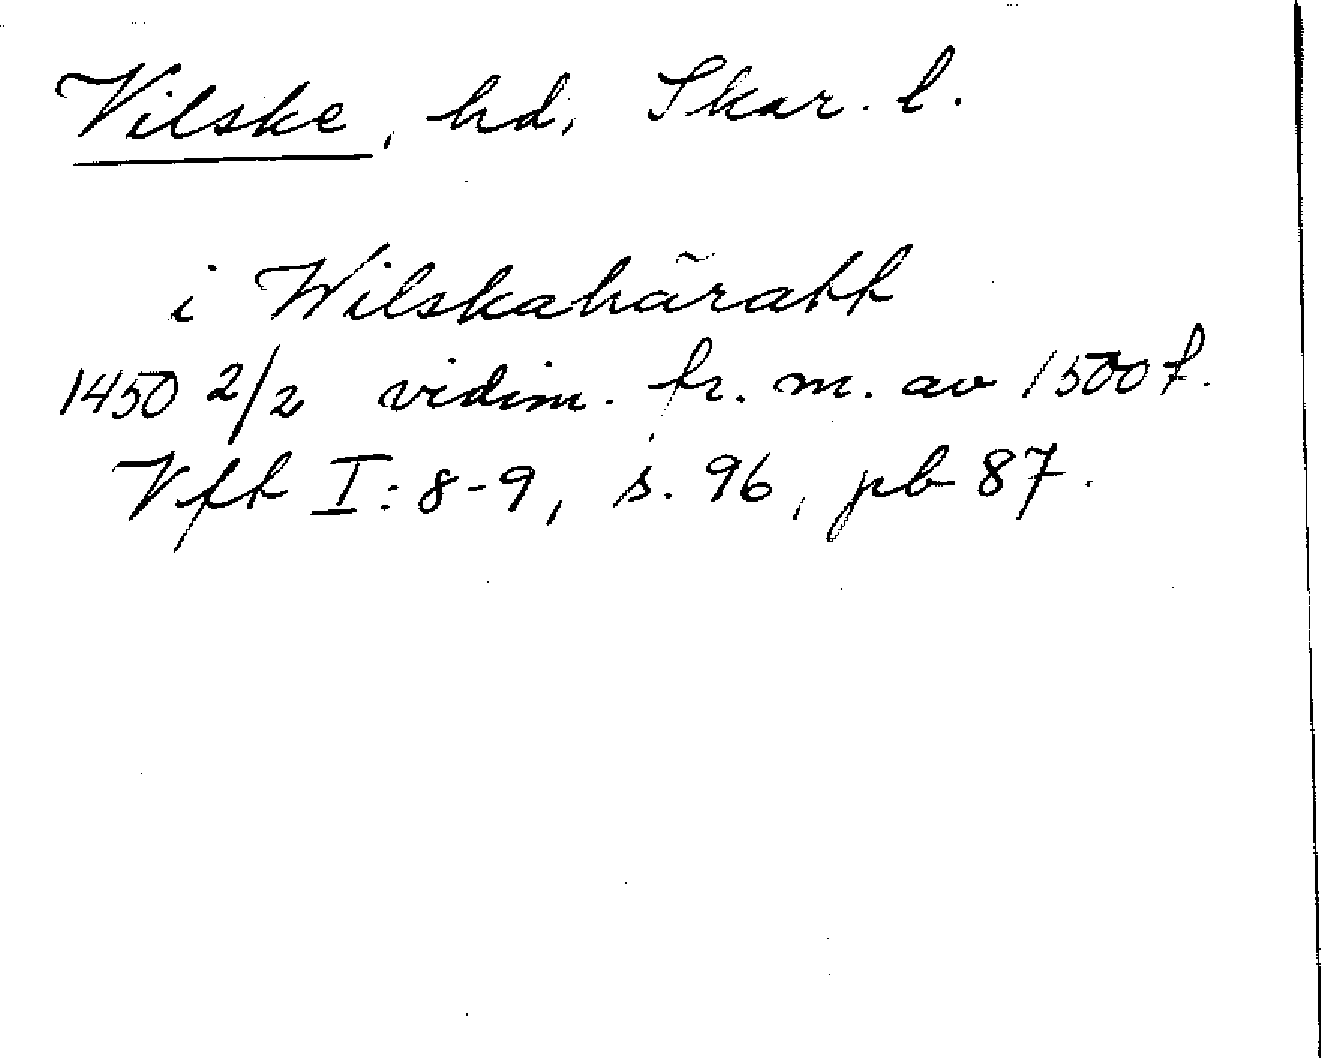 Vilske, hd, Skar. l.
i Wilskahäratt
1450 2/2 vidim. fr. m. av 1500 t.
Vft I: 8-9, s. 96, pb 87.